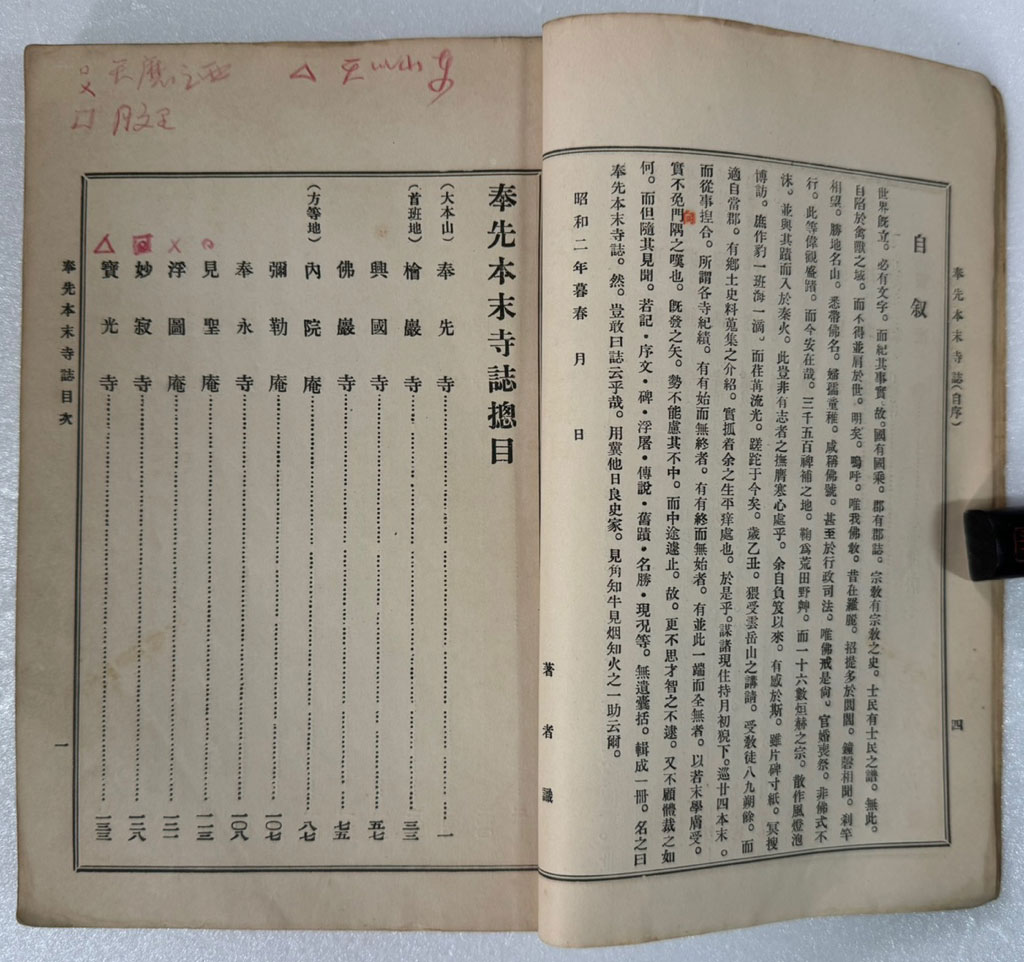 奉先本末寺誌(自序)
四
自叙
世界既立。必有文字。而紀其事實。故。國有國乘。郡有郡誌。宗敎有宗敎之史。士民有士民之譜。無此。
自陷於禽獸之域。而不得並肩於世。明矣。嗚呼。唯我佛敎。昔在羅麗。招提多於閭閻。鐘磬相聞。刹竿
相望。勝地名山。悉帶佛名。蟠孺童稚。咸稱佛號。甚至於行政司法。唯佛戒是尙。官婚喪祭。非佛式不
行。此等偉觀盛蹟。而今安在哉。三千五百裨補之地。鞠爲荒田野艸。而一十六數烜赫之宗。散作風燈泡
沫。並與其蹟而入於秦火。此豈非有志者之撫膺寒心處乎。余自負笈以來。有感於斯。雖片碑寸紙。冥搜
博訪。庶作豹一班海一滴。而荏苒流光。蹉跎于今矣。歲乙丑。猥受雲岳山之講請。受敎徒八九朔餘。而
適自當郡。有鄕土史料蒐集之介紹。實孤着余之生平痒處也。於是乎。謀諸現住持月初稅下。巡廿四本末。
而從事揑合。所謂各寺紀績。有有始而無終者。有有終而無始者。有並此一端而全無者。以若末學膚受。
實不免門隅之嘆也。旣發之矢。勢不能慮其不中。而中途遽止。故。更不思才智之不逮。又不顧體裁之如
何。而但隨其見聞。若記・序文・碑・浮屠・傳說・舊蹟・名勝・現况等。無遺囊括。輯成一冊。名之曰
奉先本末寺誌。然。豈敢曰誌云乎哉。用冀他日良史家。見角知牛見烟知火之一助云爾。
昭和二年暮春 月 日
著者識
奉先本末寺誌摠目
(大本山)奉先寺……一
(首班地)檜巖寺……三三
興國寺……五七
佛巖寺……七五
(方等地)內院庵……八七
彌勒庵……一〇七
奉永寺……一〇八
見聖庵……一一三
浮圖庵……一二一
妙寂寺……一二八
寶光寺……一三三
奉先本末寺誌目次
一